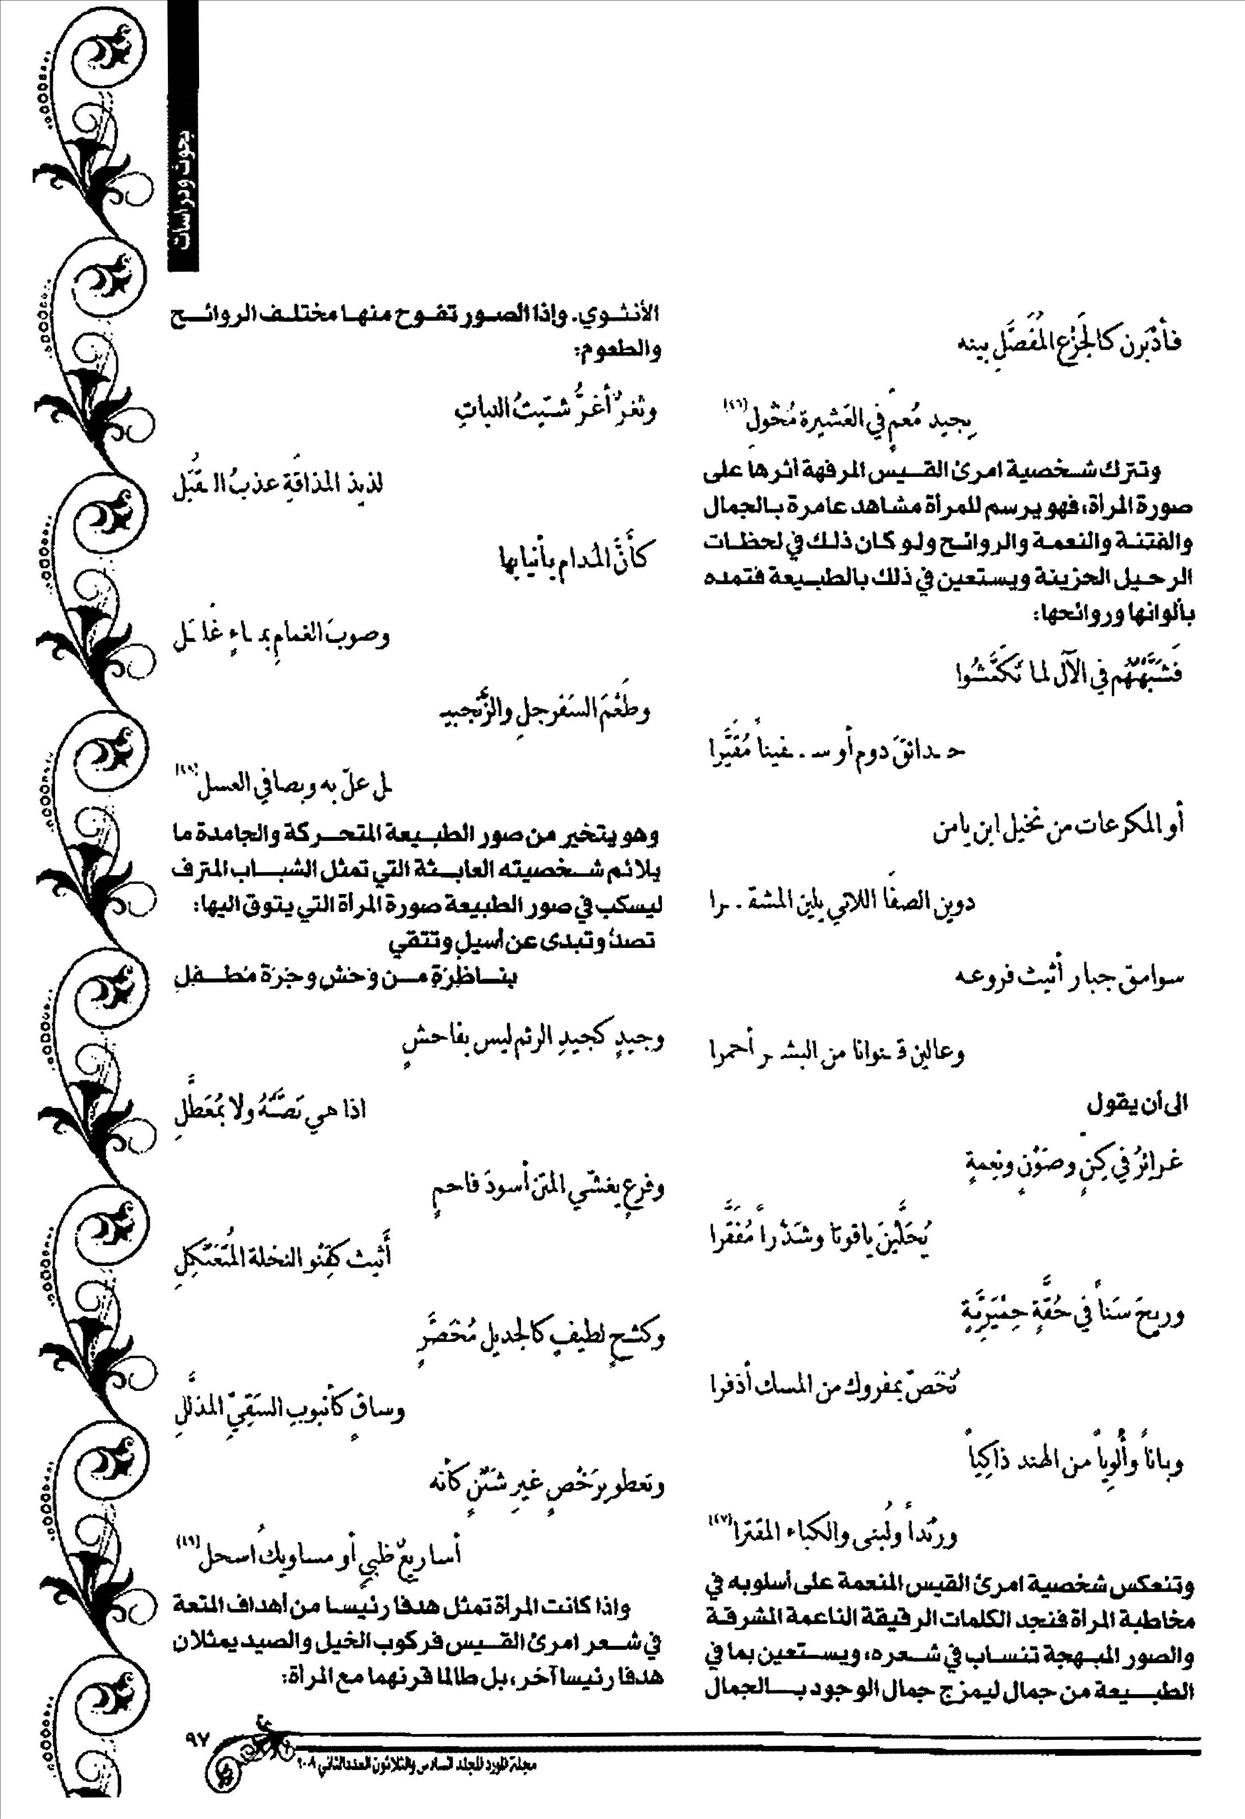 بحوث ودراسات
فأدْبَرن كالجَزْع المُفَصَّلِ بينه
بِجيد مُعمٍّ في العَشيرة مُخْولِ (٤٦)
وتترك شخصية امرئ القيس المرفهة أثرها على
صورة المرأة، فهو يرسم للمرأة مشاهد عامرة بالجمال
والفتنة والنعمة والروائح ولو كان ذلك في لحظات
الرحيل الحزينة ويستعين في ذلك بالطبيعة فتمده
بألوانها وروائحها:
فَشَبَّهتُهُم في الآل لما تَكَمَّشُوا
حدائقَ دوم أو سفيناً مُقَيَّرا
أو المكرعات من نخيل ابن يامن
دوين الصفا اللاتي يلين المشقرا
سوامق جبار أثيث فروعه
وعالين قنوانا من البشر أحمرا
الى أن يقول
غرائِرُ في كِنٍّ وصَوْنٍ ونِعمةٍ
يُحَلَّيْنَ ياقوتا وشَذْراً مُفَقَّرا
وريحَ سَناً في حُقَّةٍ حِمْيَرِيَّةٍ
تُخَصّ بمفروك من المسك أذفرا
وباناً وأُلوِياً من الهند ذاكِياً
ورَنْداً ولُبنى والكباء المقترا (٤٧)
وتنعكس شخصية امرئ القيس المنعمة على أسلوبه في
مخاطبة المرأة فنجد الكلمات الرقيقة الناعمة المشرقة
والصور المبهجة تنساب في شعره، ويستعين بما في
الطبيعة من جمال ليمزج جمال الوجود بالجمال
الأنثوي. وإذا الصور تفوح منها مختلف الروائح
والطعوم:
وثغرٌ أغرُّ شتيتُ النباتِ
لذيذ المذاقةِ عذبُ المُقَبَّل
كأنَّ المُدام بأنيابها
وصوبَ الغمامِ بماءٍ غَلَل
وطَعْمَ السَفرجلِ والزَّنجبيـ
ل علّ به وبصافي العسل (٤٨)
وهو يتخير من صور الطبيعة المتحركة والجامدة ما
يلائم شخصيته العابثة التي تمثل الشباب المترف
ليسكب في صور الطبيعة صورة المرأة التي يتوق اليها:
تصدُ وتبدى عن أسيلٍ وتتقي
بناظرةٍ من وَحْشِ وجرة مُطفِلِ
وجيدٍ كجيدِ الرئم ليس بفاحشٍ
اذا هي نَصَّتْهُ ولا بمُعَطَّلِ
وفرعٍ يغشّي المتن أسودَ فاحمٍ
أَثيث كَقِنْو النخلة المُتَعَثْكِلِ
وكشحٍ لطيفٍ كالجديل مُخَصَّرٍ
وساقٍ كأنبوبِ السَقِيِّ المذلَّلِ
وتعطو برَخْصٍ غيرِ شَثْنٍ كأنه
أساريعُ ظبيٍ أو مساويكُ اسحل (٤٩)
واذا كانت المرأة تمثل هدفا رئيسا من أهداف المتعة
في شعر امرئ القيس فركوب الخيل والصيد يمثلان
هدفا رئيسا آخر، بل طالما قرنهما مع المرأة:
٩٧
مجلة المورد المجلد السادس والثلاثون العدد الثاني ٢٠٠٩